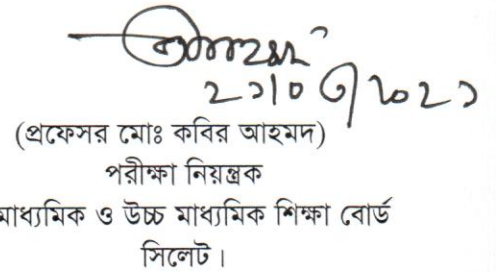 (প্রফেসর মোঃ কবির আহমদ)
পরীক্ষা নিয়ন্ত্রক
মাধ্যমিক ও উচ্চ মাধ্যমিক শিক্ষা বোর্ড
সিলেট।